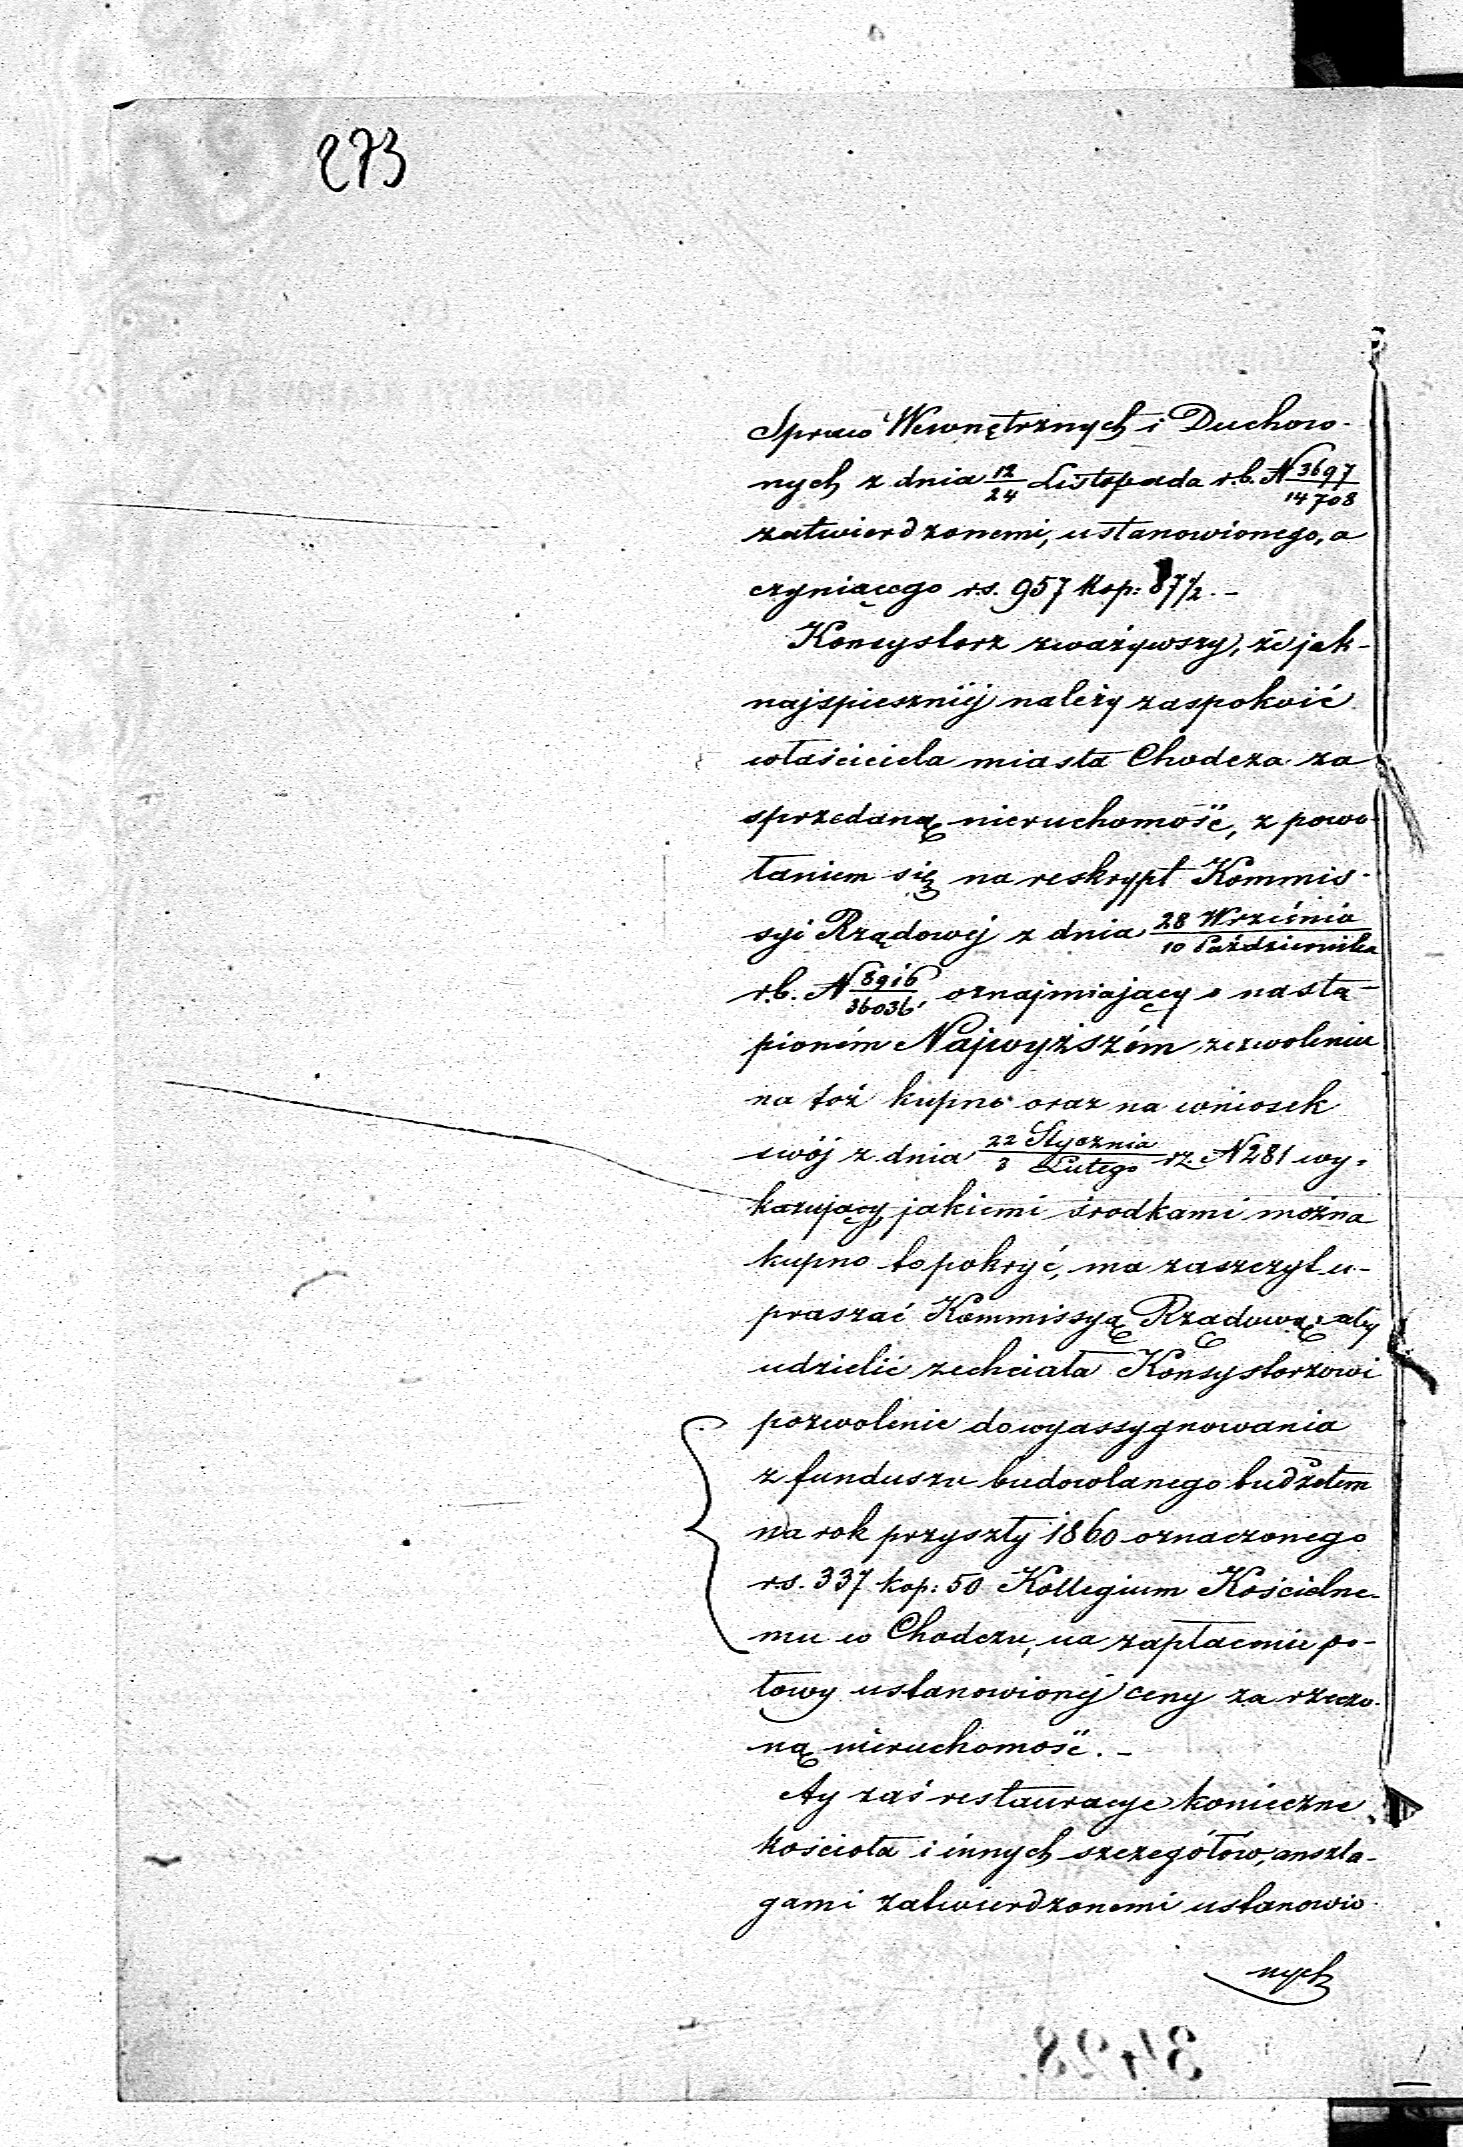 273
Spraw Wewnętrznych i Duchow-
nych z dnia 12/24 Listopada r.b. N 3697/14708
zatwierdzonemi, ustanowionego, a
czyniącego rs. 957 kop: 87 1/2. -
Konsystorz zważywszy, że jak-
najspieszniéj należy zaspokoić
właściciela miasta Chodcza za
sprzedaną nieruchomość, z powo-
łaniem się na reskrypt Kommis-
syi Rządowéj z dnia 28 Września/10 Października
r.b. N 8916/36036, oznajmiający o nastą-
pioném Najwyższém zezwoleniu
na toż kupno oraz na wniosek
swój z dnia 22 Stycznia/3 Lutego rz. N 281 wy-
kazujący, jakiemi środkami można
kupno to pokryć, ma zaszczyt u-
praszać Kommissyą Rządową, aby
udzielić zechciała Konsystorzowi
pozwolenie do wyassygnowania
z funduszu budowlanego budżetem
na rok przyszły 1860 oznaczonego
rs. 337 kop: 50 Kollegium Kościelne-
mu w Chodczu, na zapłacenie po-
łowy ustanowionéj ceny za rzeczo-
ną nieruchomość. -
Ay zaś restauracye konieczne
kościoła i innych szczegółów, anszla-
gami zatwierdzonemi ustanowio-
nych
3428